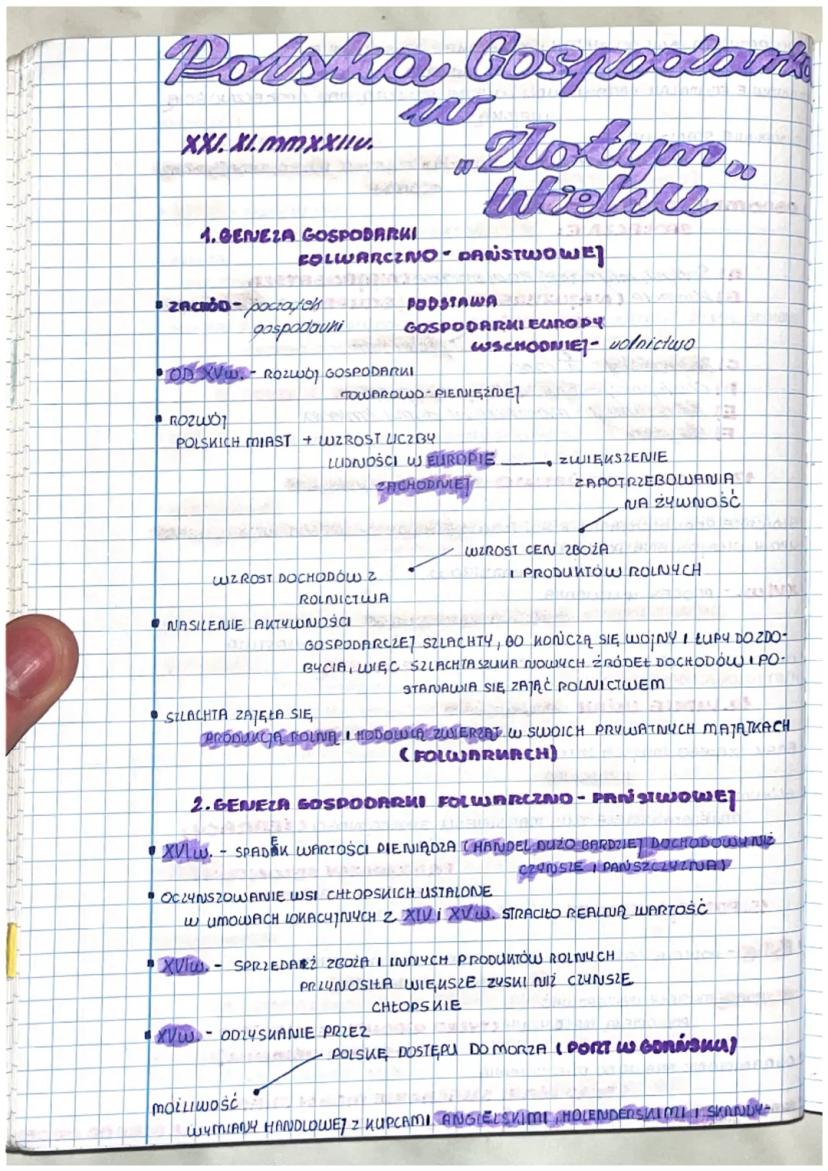 Polska Gospodarka
w
XXI. XI. MMXXIIIV.
„Złotym„
Wieku
1. GENEZA GOSPODARKI
FOLWARCZNO - PAŃSTWOWEJ
ZACHÓD - początek PODSTAWA
gospodarki GOSPODARKI EUROPY
WSCHODNIEJ - rolnictwo
OD XV w. - ROZWÓJ GOSPODARKI
TOWAROWO - PIENIĘŻNEJ
ROZWÓJ
POLSKICH MIAST + WZROST LICZBY
LUDNOŚCI W EUROPIE ZWIĘKSZENIE
ZACHODNIEJ ZAPOTRZEBOWANIA
NA ŻYWNOŚĆ
WZROST CEN ZBOŻA
WZROST DOCHODÓW Z I PRODUKTÓW ROLNYCH
ROLNICTWA
NASILENIE AKTYWNOŚCI
GOSPODARCZEJ SZLACHTY, BO KOŃCZĄ SIĘ WOJNY I ŁUPY DO ZDO-
BYCIA, WIĘC SZLACHTA SZUKA NOWYCH ŹRÓDEŁ DOCHODÓW I PO-
STANAWIA SIĘ ZAJĄĆ ROLNICTWEM
SZLACHTA ZAJĘŁA SIĘ
PRODUKCJĄ ROLNĄ I HODOWLĄ ZWIERZĄT W SWOICH PRYWATNYCH MAJĄTKACH
(FOLWARKACH)
2. GENEZA GOSPODARKI FOLWARCZNO - PAŃSTWOWEJ
XVI w. - SPADEK WARTOŚCI PIENIĄDZA (HANDEL DUŻO BARDZIEJ DOCHODOWY NIŻ
CZYNSZE I PAŃSZCZYZNA)
OCZYNSZOWANIE WSI CHŁOPSKICH USTALONE
W UMOWACH LOKACYJNYCH Z XIV I XV w. STRACIŁO REALNĄ WARTOŚĆ
XVI w. - SPRZEDAŻ ZBOŻA I INNYCH PRODUKTÓW ROLNYCH
PRZYNOSIŁA WIĘKSZE ZYSKI NIŻ CZYNSZE
CHŁOPSKIE
XV w. - ODZYSKANIE PRZEZ
POLSKĘ DOSTĘPU DO MORZA (PORT W GDAŃSKU)
MOŻLIWOŚĆ
WYMIANY HANDLOWEJ Z KUPCAMI ANGIELSKIMI, HOLENDERSKIMI I SKANDY-